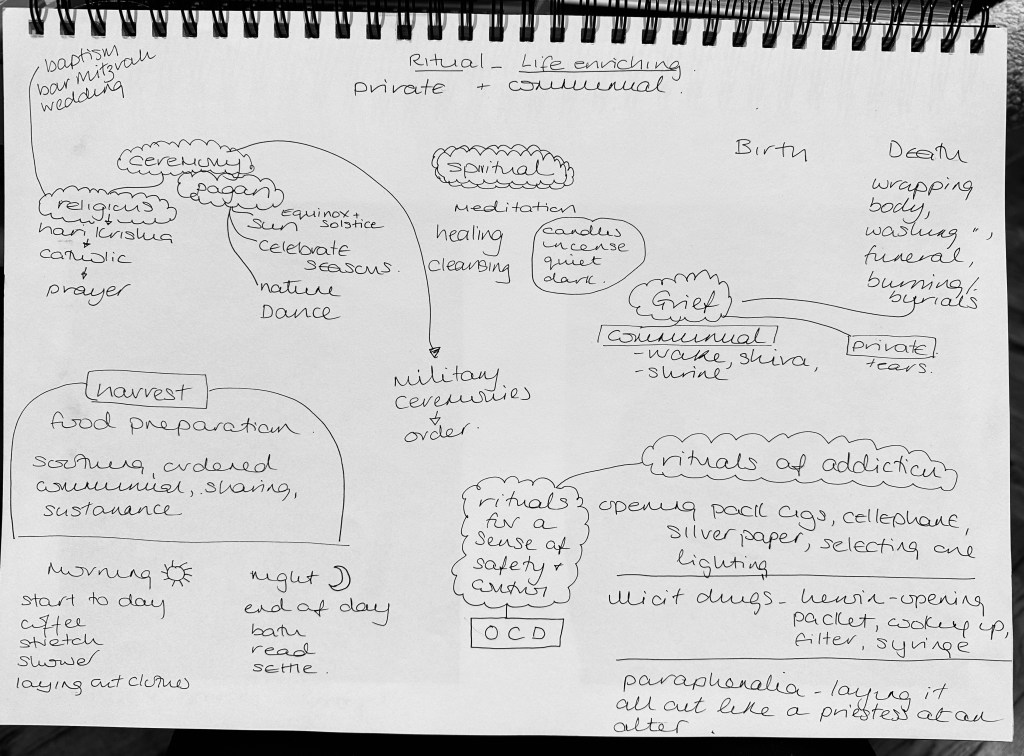 Ritual - Life enriching.
private + communal.
baptism
bar mitzvah
wedding
ceremony
pagan
religious
hari krishna
catholic
prayer
sun Equinox + Solstice
celebrate
seasons.
nature
Dance
spiritual
meditation
healing
cleansing
candles
incense
quiet
dark.
Birth
Death
wrapping
body,
washing ",
funeral,
burning/.
byrials
Grief
communual
-wake, shiva,
-shrine
private.
tears.
military
ceremonies
order.
harvest
food preparation.
soothing, ordered
communual, sharing,
sustanance
morning
start to day
coffee
stretch
shower
laying out clothes
night
end of day
bath
read
settle.
rituals of addiction
rituals
for a
sense of
safety +
control
OCD
opening pack cigs, cellephane,
silver paper, selecting one
lighting
illicit drugs - heroin - opening
packet, cooking up,
filter, syringe
paraphenalia - laying it
all out like a priestess at an
alter.